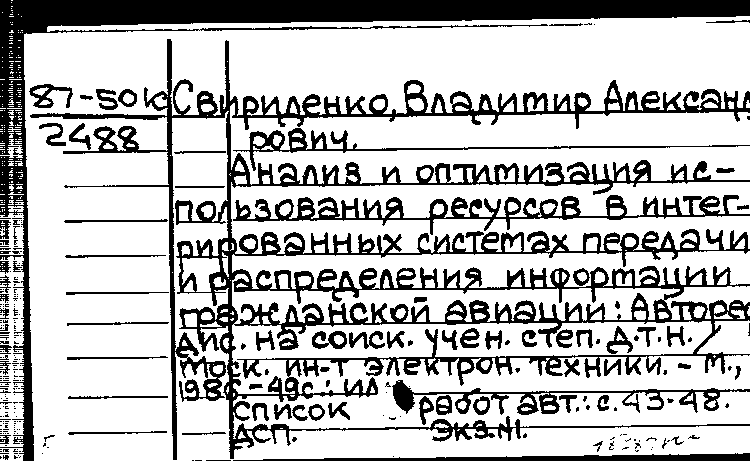 87-50к
2488
Свириденко, Владимир Александ
рович.
Анализ и оптимизация ис-
пользования ресурсов в интег-
рированных системах передачи
и распределения информации
гражданской авиации: Авторе
дис. на соиск. учен. степ. д.т.н. /
Моск. ин-т электрон. техники. - М.,
1986. - 49с.: ил
Список работ авт.: с. 43-48.
ДСП. Экз. №1.